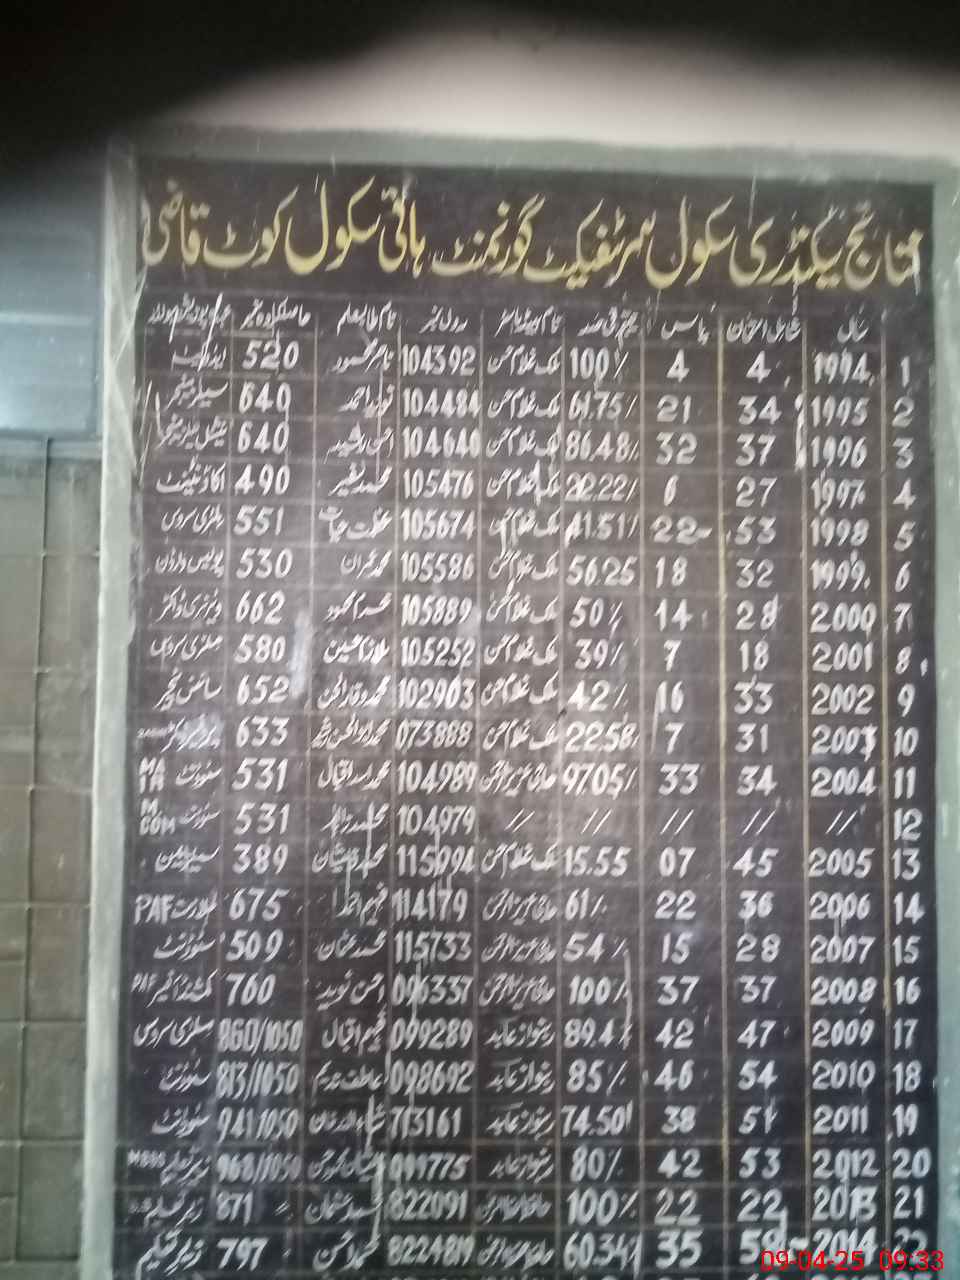 نتائج سیکنڈری سکول سرٹیفکیٹ گورنمنٹ ہائی سکول کوٹ قاضی
سال شامل امتحان پاس نتیجہ فی صد نام ہیڈ ماسٹر رول نمبر نام طالبعلم حاصل کردہ نمبر
1 1994 4 4 100% ملک غلام حسن 104392 520
2 1995 34 21 61.75% ملک غلام حسن 104484 نوید احمد 640
3 1996 37 32 86.48% ملک غلام حسن 104640 احسن رشید 640
4 1997 27 6 22.22% ملک غلام حسن 105476 محمد نصیر 490 اکاؤنٹینٹ
5 1998 53 22 41.51% ملک غلام حسن 105674 551 ملٹری سروس
6 1999 32 18 56.25 ملک غلام حسن 105586 محمد عمران 530 پولیس وارڈن
7 2000 28 14 50% ملک غلام حسن 105889 662 ویٹرنری ڈاکٹر
8 2001 18 7 39% ملک غلام حسن 105252 580 ملٹری سروس
9 2002 33 16 42% ملک غلام حسن 102903 محمد وقار الحسن 652 سائنس ٹیچر
10 2003 31 7 22.58% ملک غلام حسن 073888 633
11 2004 34 33 97.05% حاجی عزیز الرحمن 104989 محمد اسد اقبال 531 سٹوڈنٹ MA
12 // // // // // 104979 محمد زاہد 531 سٹوڈنٹ M.COM
13 2005 45 07 15.55 ملک غلام حسن 115994 محمد ذیشان 389 سیلزمین
14 2006 36 22 61% حاجی عزیز الرحمن 114179 فہیم احمد 675 PAF
15 2007 28 15 54% حاجی عزیز الرحمن 115733 محمد عثمان 509 سٹوڈنٹ
16 2008 37 37 100% حاجی عزیز الرحمن 096337 احسن نوید 760 PAF
17 2009 47 42 89.4% ربنواز عابد 099289 فہیم اقبال 860/1050 ملٹری سروس
18 2010 54 46 85% ربنواز عابد 098692 عاطف ندیم 813/1050 سٹوڈنٹ
19 2011 51 38 74.50% ربنواز عابد 713161 941/1050 سٹوڈنٹ
20 2012 53 42 80% ربنواز عابد 968/1050 زیر تعلیم MBBS
21 2013 22 22 100% 822091 محمد عثمان 871 // زیر تعلیم
22 2014 35 60.34% 797 // زیر تعلیم
09-04-25 09:33